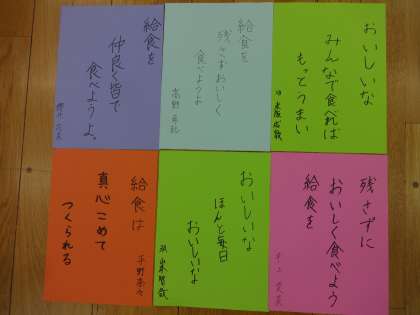 おいしいな
みんなで食べれば
もっとうまい
給食を
残さずおいしく
食べようよ
給食を
仲良く皆で
食べようよ、
残さずに
おいしく食べよう
給食を
おいしいな
ほんと毎日
おいしいな
給食は
真心こめて
つくられる
平野奈々